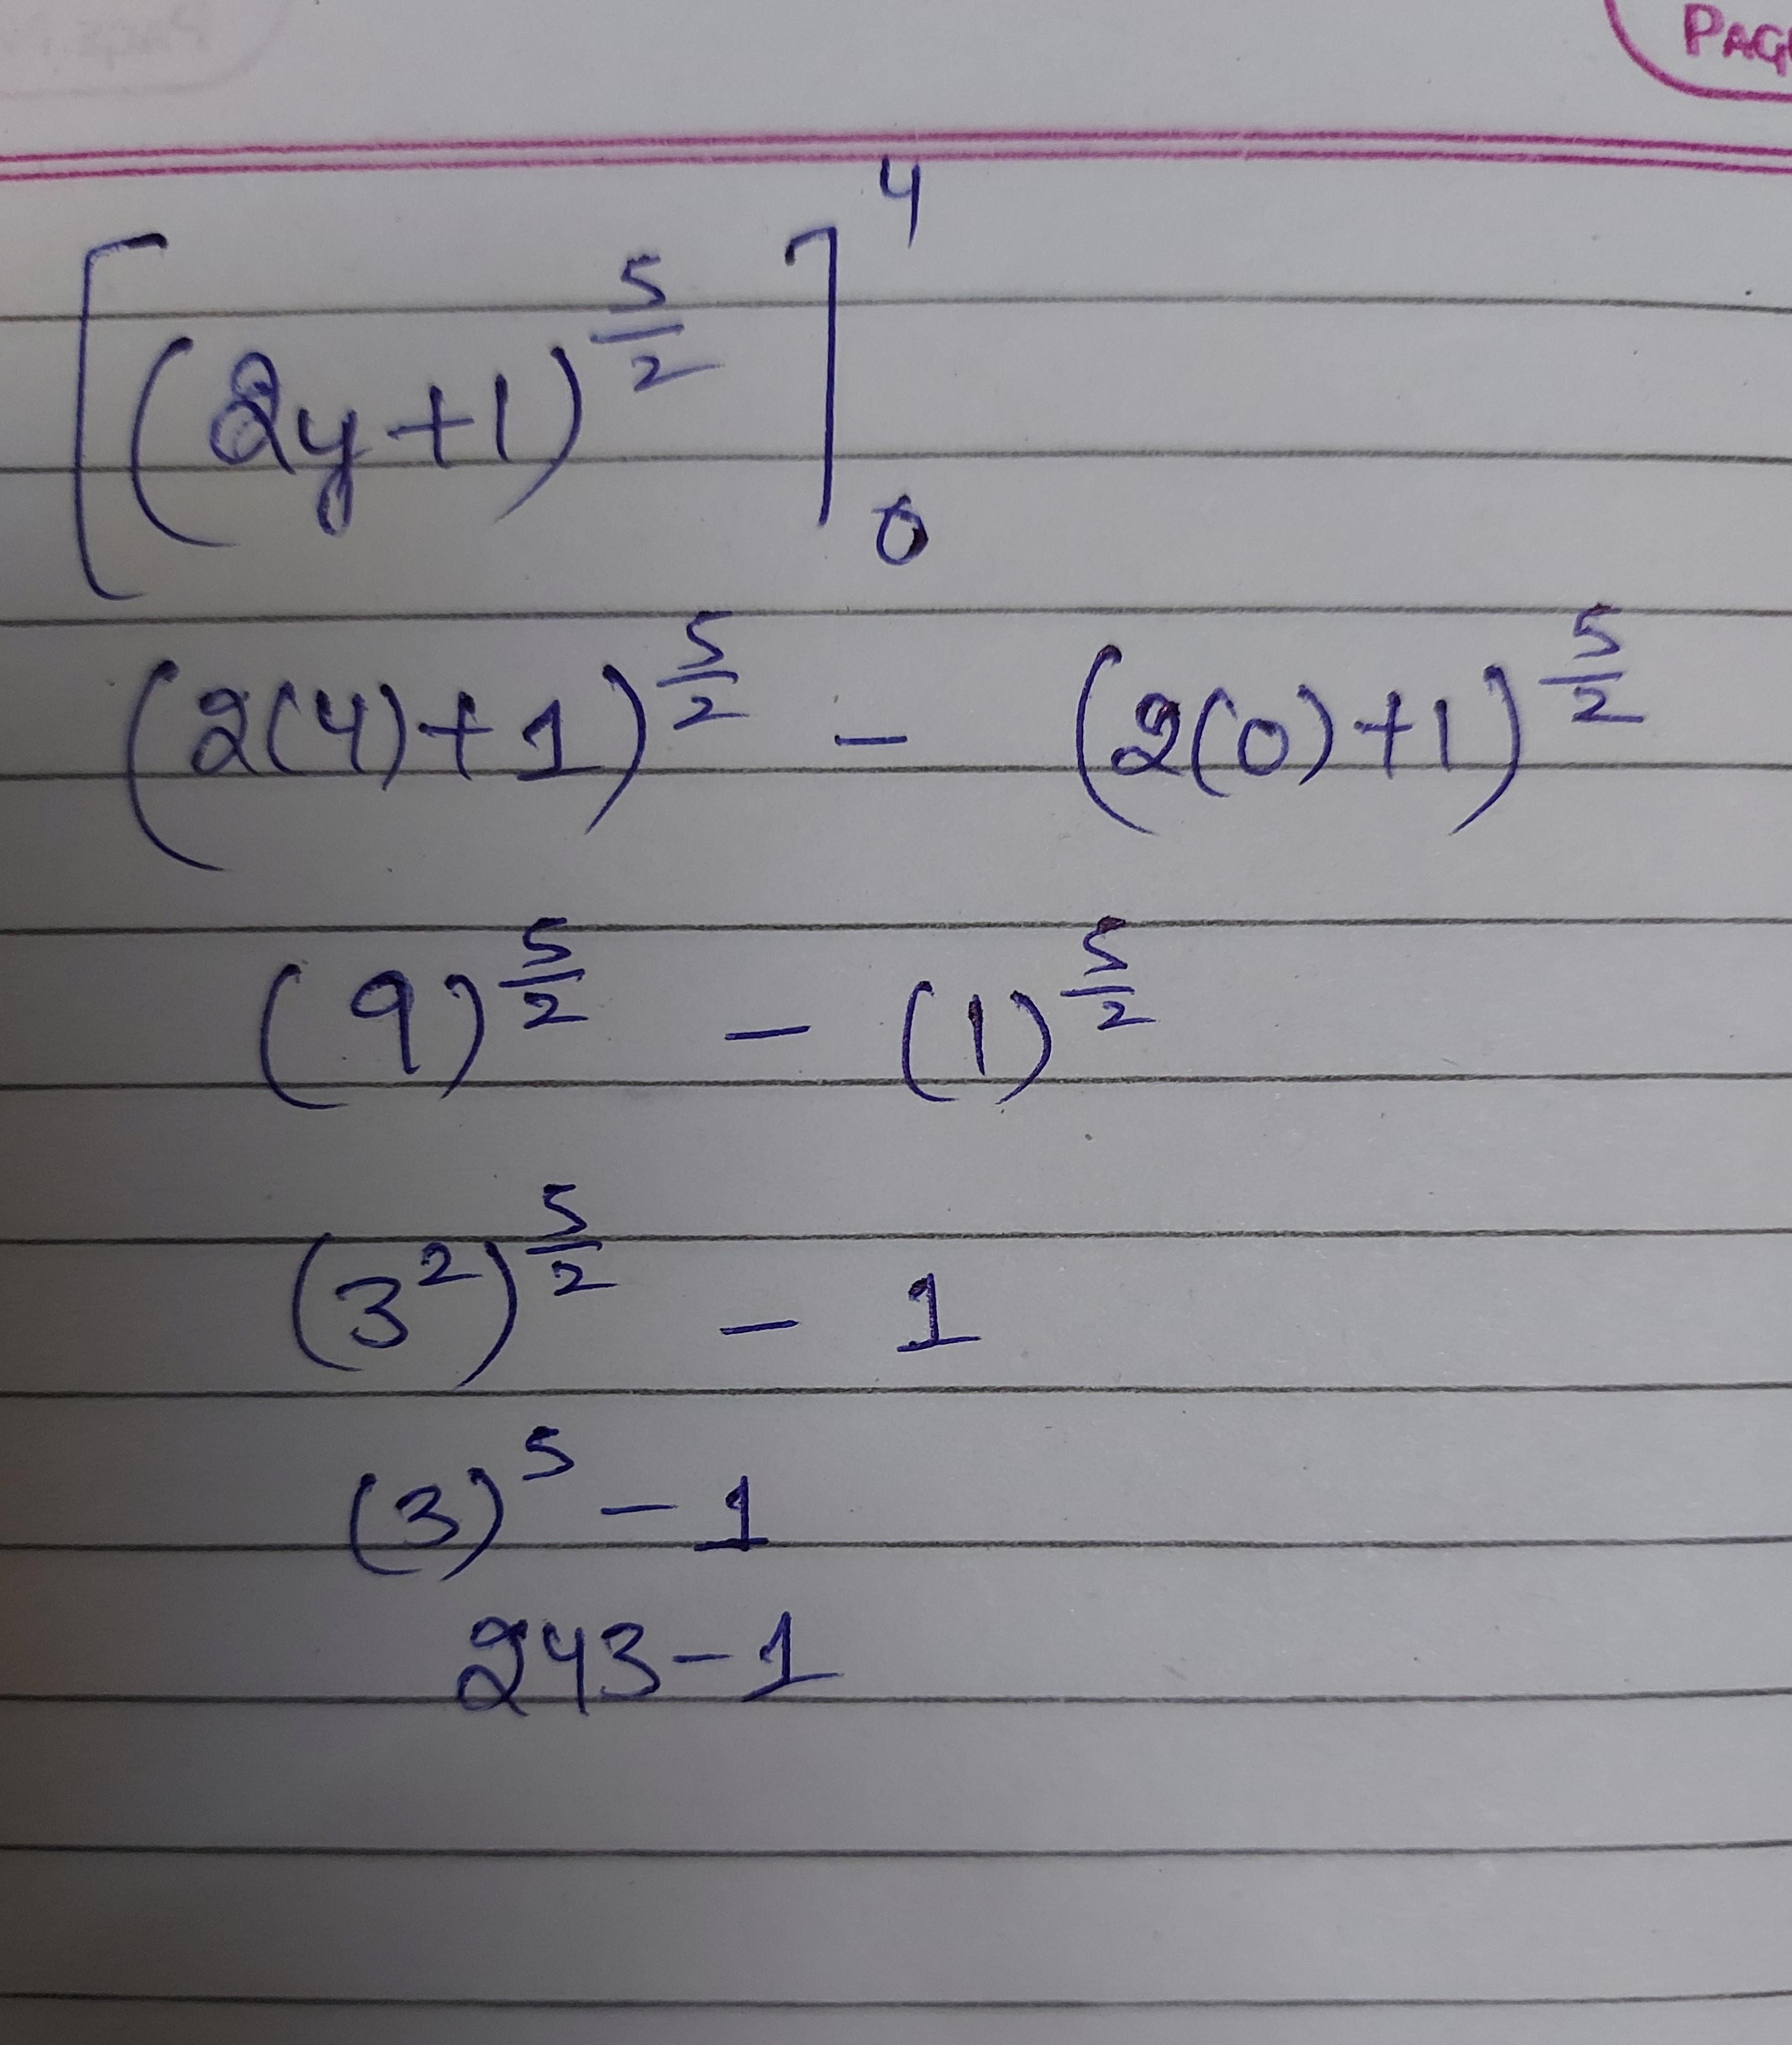 PAG
[(2y+1)^{5/2}]_0^4
(2(4)+1)^{5/2} - (2(0)+1)^{5/2}
(9)^{5/2} - (1)^{5/2}
(3^2)^{5/2} - 1
(3)^5 - 1
243-1